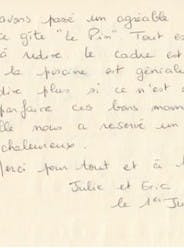 avons passé un agréable
ce gîte "le Pin" Tout es
à redire. Le cadre est
la piscine est géniale
dire plus si ce n'est a
parfaire ces bons mom
elle nous a reservé un
chaleureux.
Merci pour tout et à l
Julie et Eric
le 1er Jui